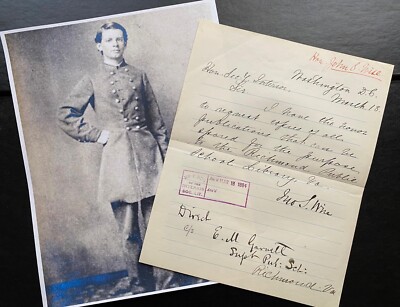 Hon John S. Wise
Washington D.C.
March 13
Hon. Sec'y Interior
Sir
I have the honor
to request copies of all
publications that can be
spared for the purpose
to the Richmond Public
School Library, Va.
Jno. S. Wise
MAR 18 1884
Direct
c/o
E. M. Garnett
Supt Pub. Sch:
Richmond Va